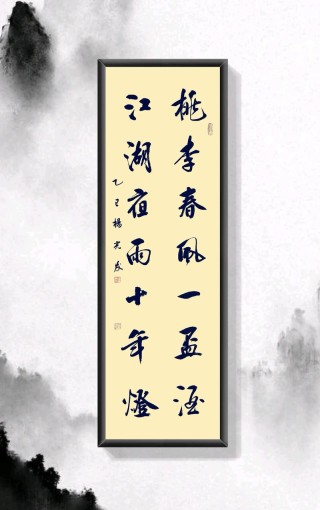 桃李春风一盃酒
江湖夜雨十年燈
乙巳楊光發